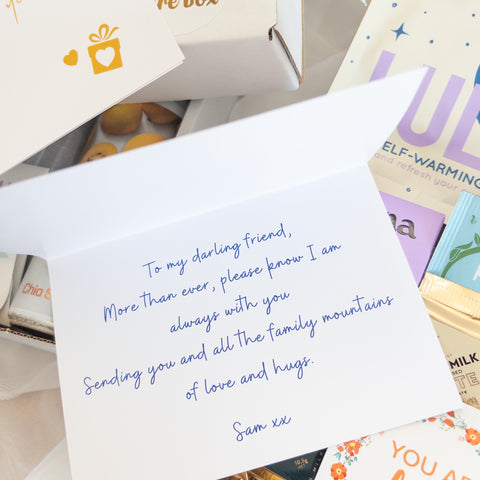 re box
ELF-WARMING
and refresh your
na
Chia S
To my darling friend,
More than ever, please know I am
always with you
Sending you and all the family mountains
of love and hugs.
Sam xx
MILK
YOU A